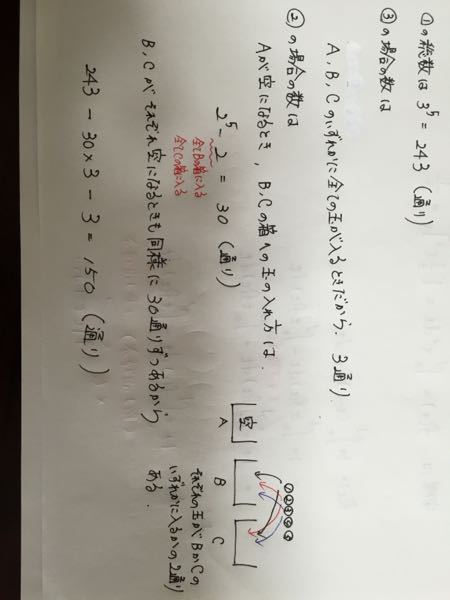 ①の総数は 3⁵ = 243 (通り)
③の場合の数は
A, B, Cのいずれかに全ての玉が入るときだから, 3通り.
②の場合の数は
Aが空になるとき, B, Cの箱への玉の入れ方は.
2⁵ - 2 = 30 (通り)
全てBの箱に入る
全てCの箱に入る
①②③④⑤
空
A B C
それぞれの玉がBかCの
いずれかに入るかの2通り
ある.
B, Cがそれぞれ空になるときも同様に30通りずつあるから
243 - 30×3 - 3 = 150 (通り)